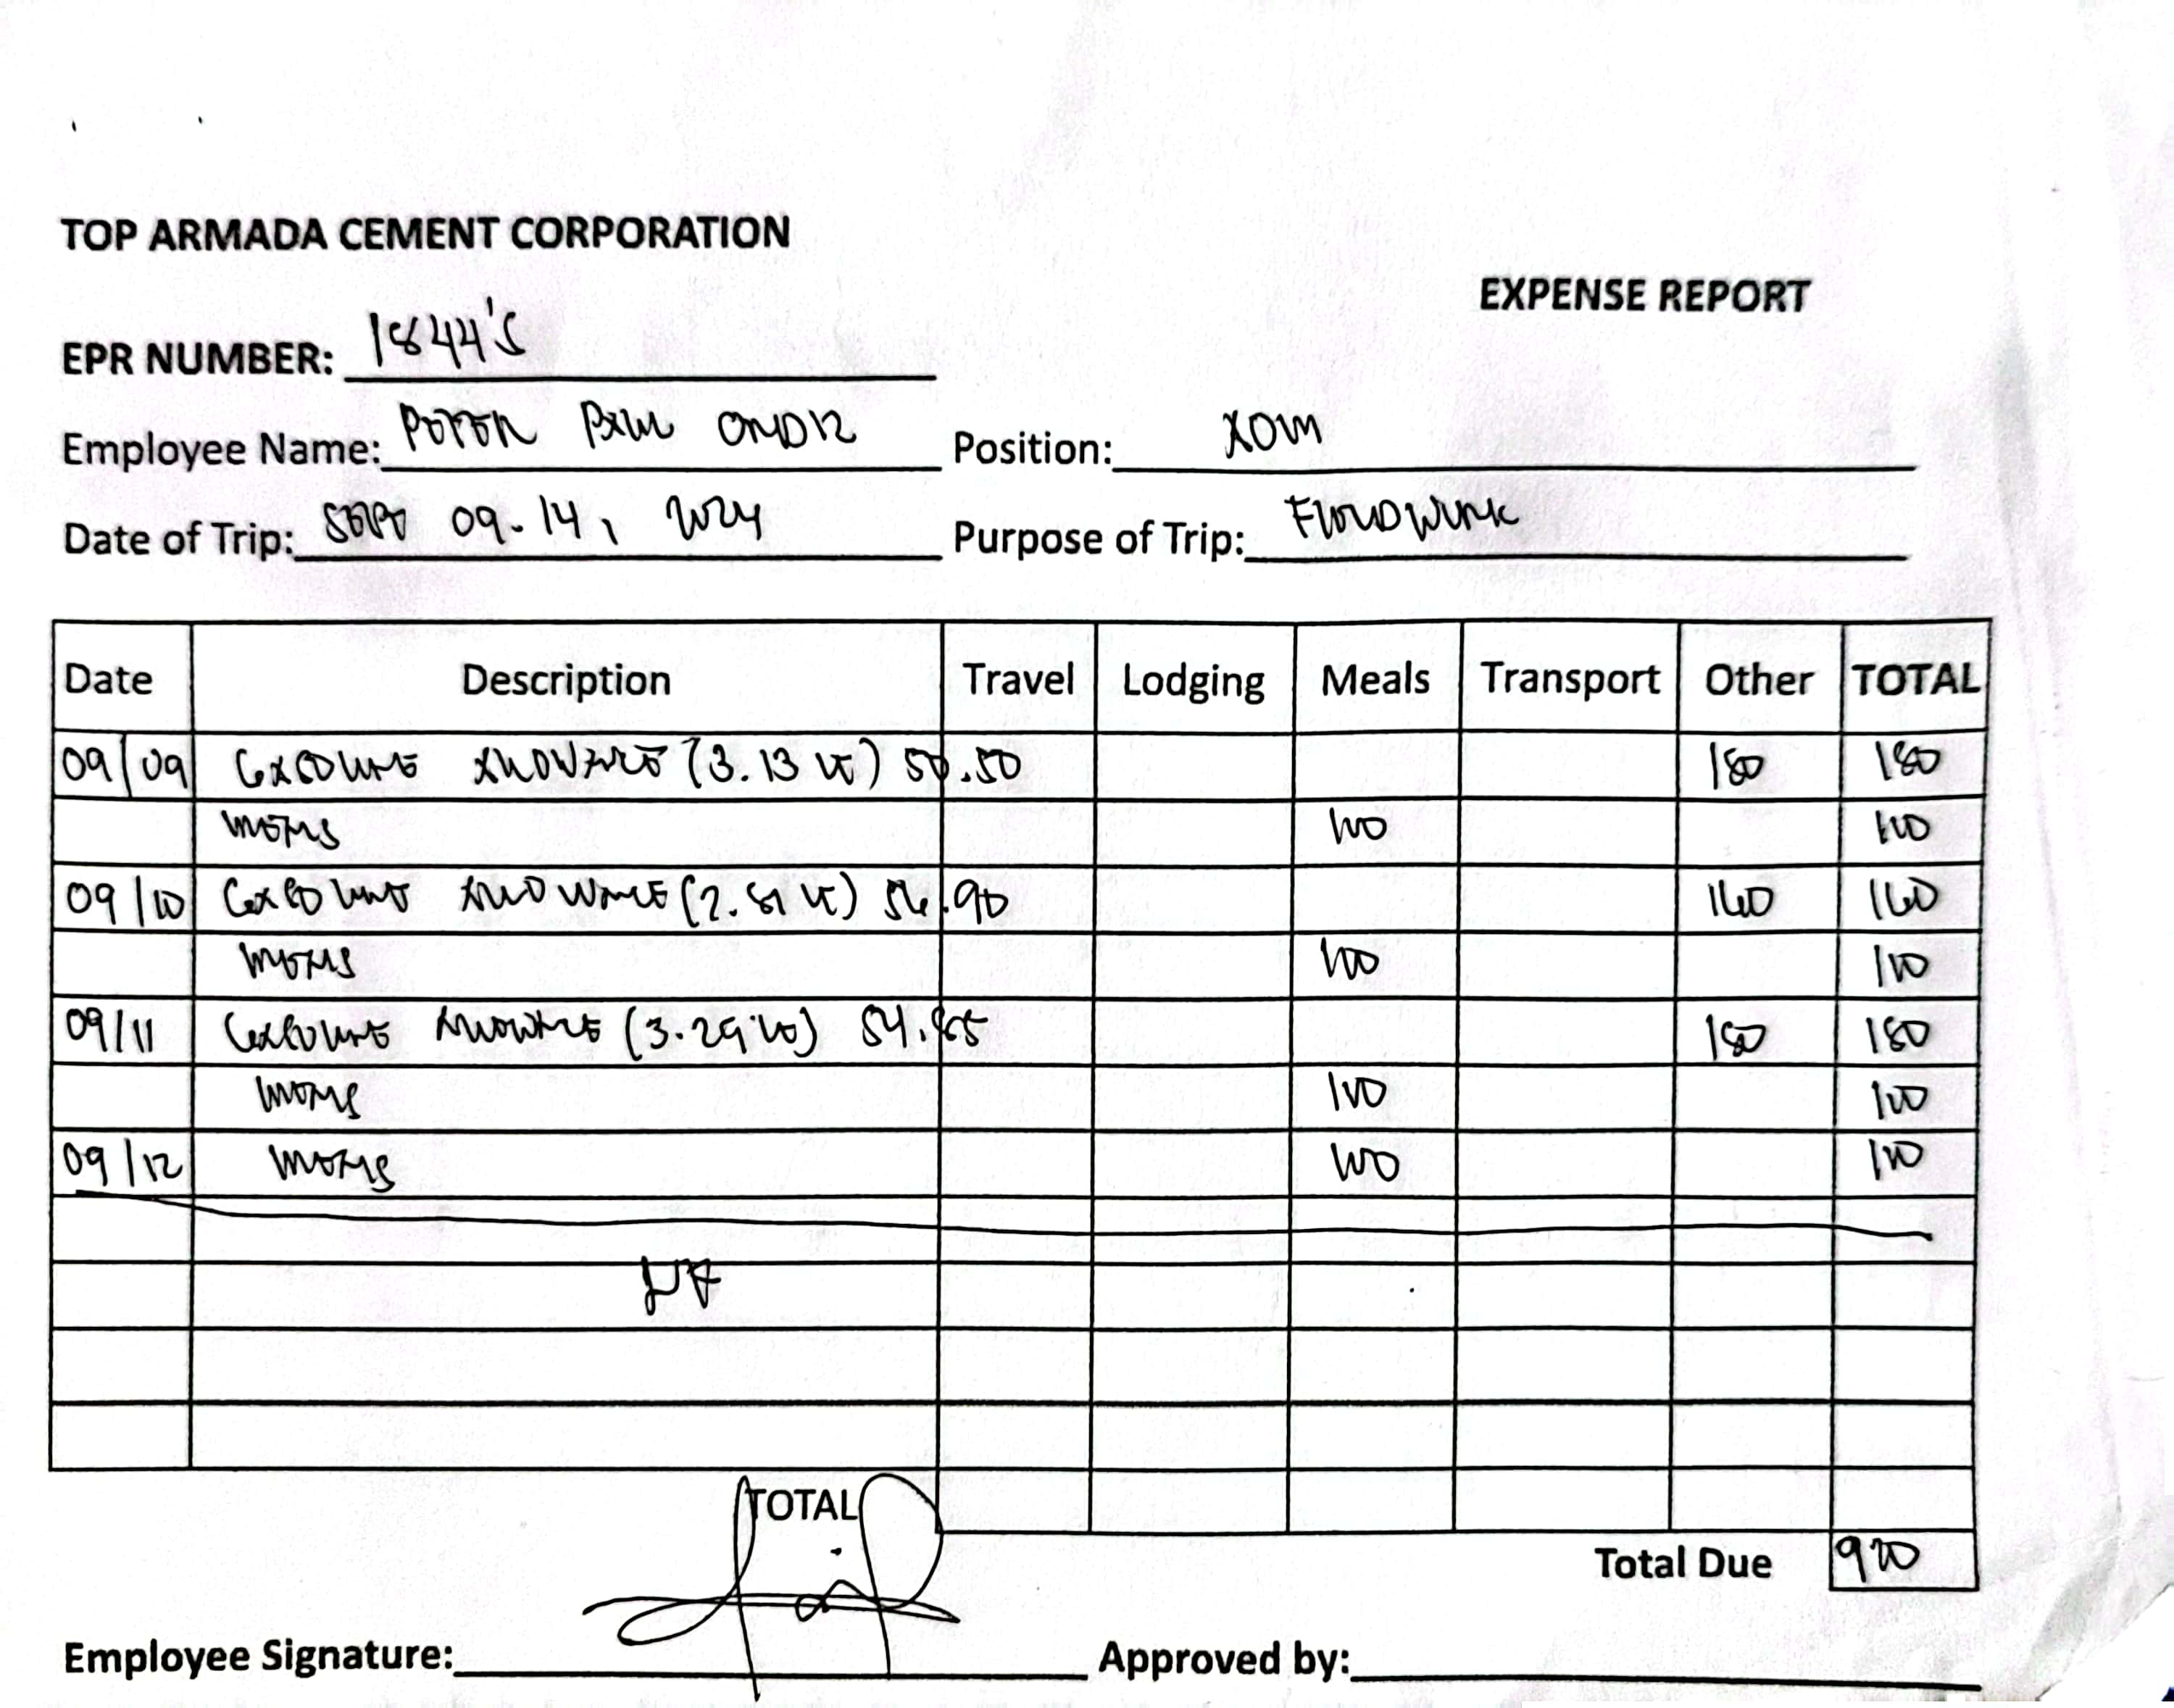 TOP ARMADA CEMENT CORPORATION
EXPENSE REPORT
EPR NUMBER: 18441's
Employee Name: PETER PAUL Position: AOM
Date of Trip: SEPT 09-14, 2024 Purpose of Trip: FIELDWORK
Date Description Travel Lodging Meals Transport Other TOTAL
09/09 GASOLINE ALLOWANCE (3.13 lt) 180 180
MEALS 100 100
09/10 GASOLINE ALLOWANCE 160 160
MEALS 100 100
09/11 GASOLINE ALLOWANCE (3.29 lt) 180 180
MEALS 100 100
09/12 MEALS 100 100
TOTAL
Total Due 920
Employee Signature: Approved by: